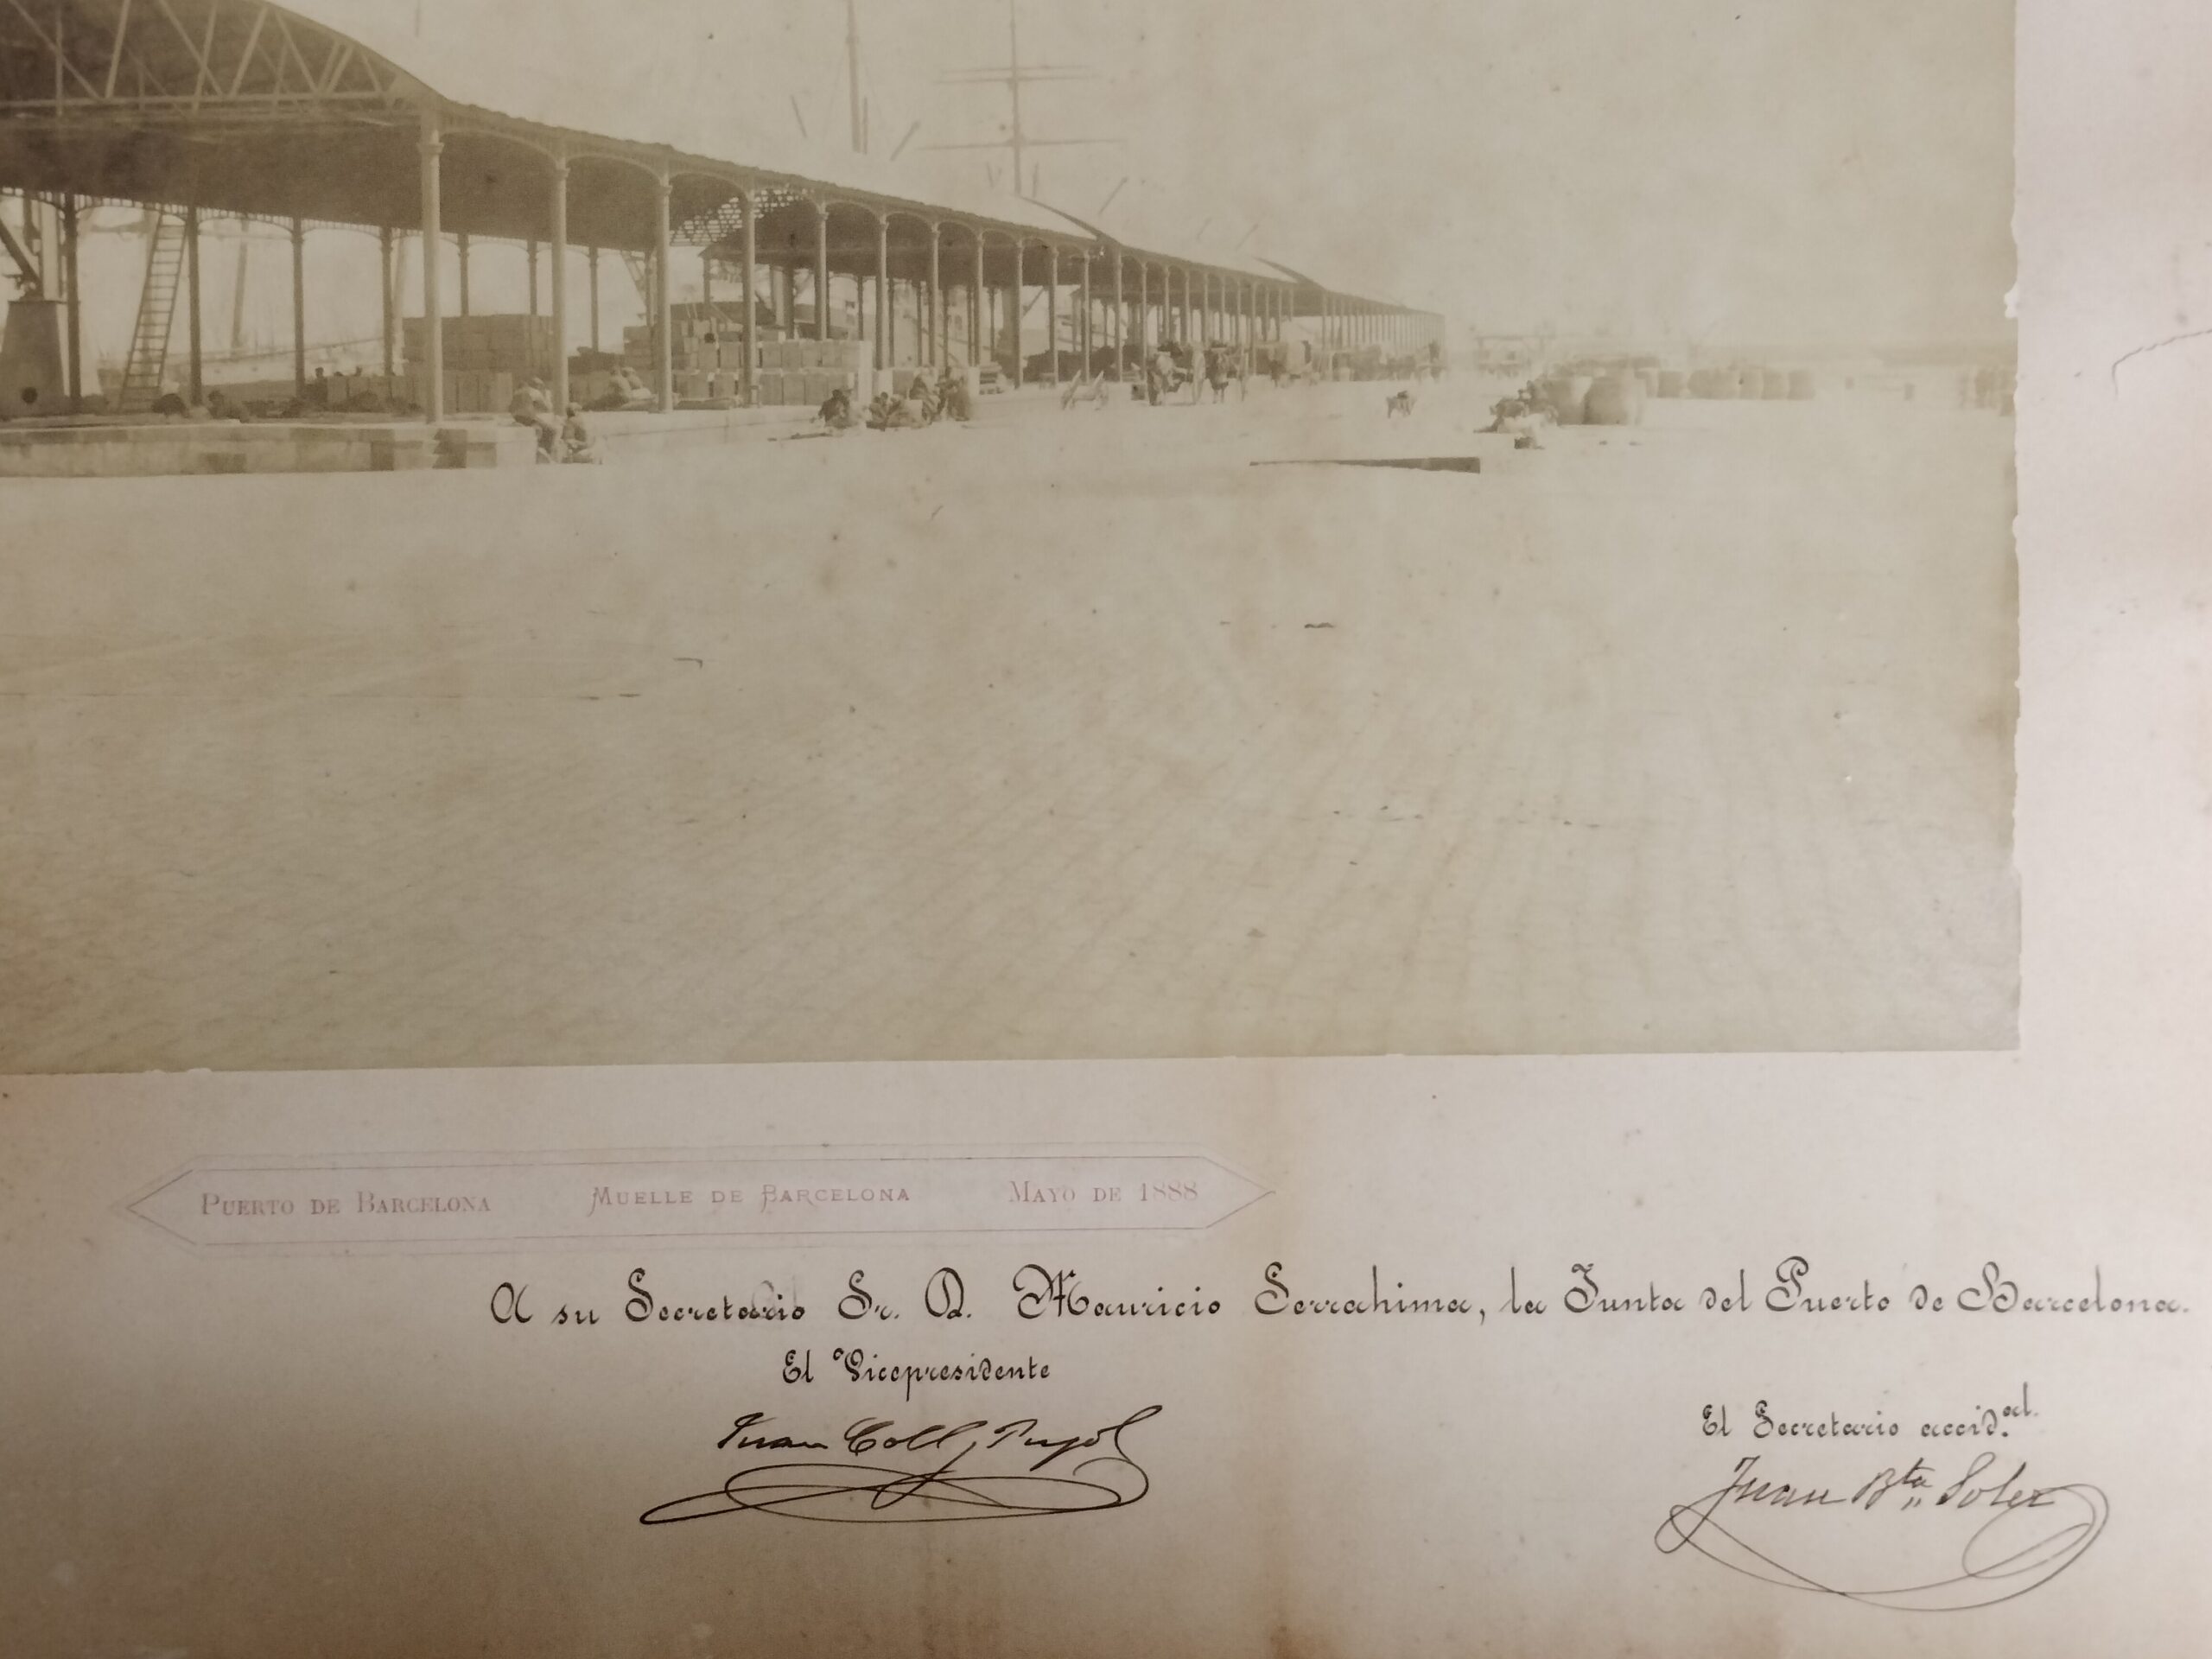 PUERTO DE BARCELONA MUELLE DE BARCELONA MAYO DE 1888
A su Secretario Sr. D. Mauricio Serrahima, la Junta del Puerto de Barcelona.
El Vicepresidente
Juan Coll y Pujol
El Secretario accid.al
Juan Bta Soler